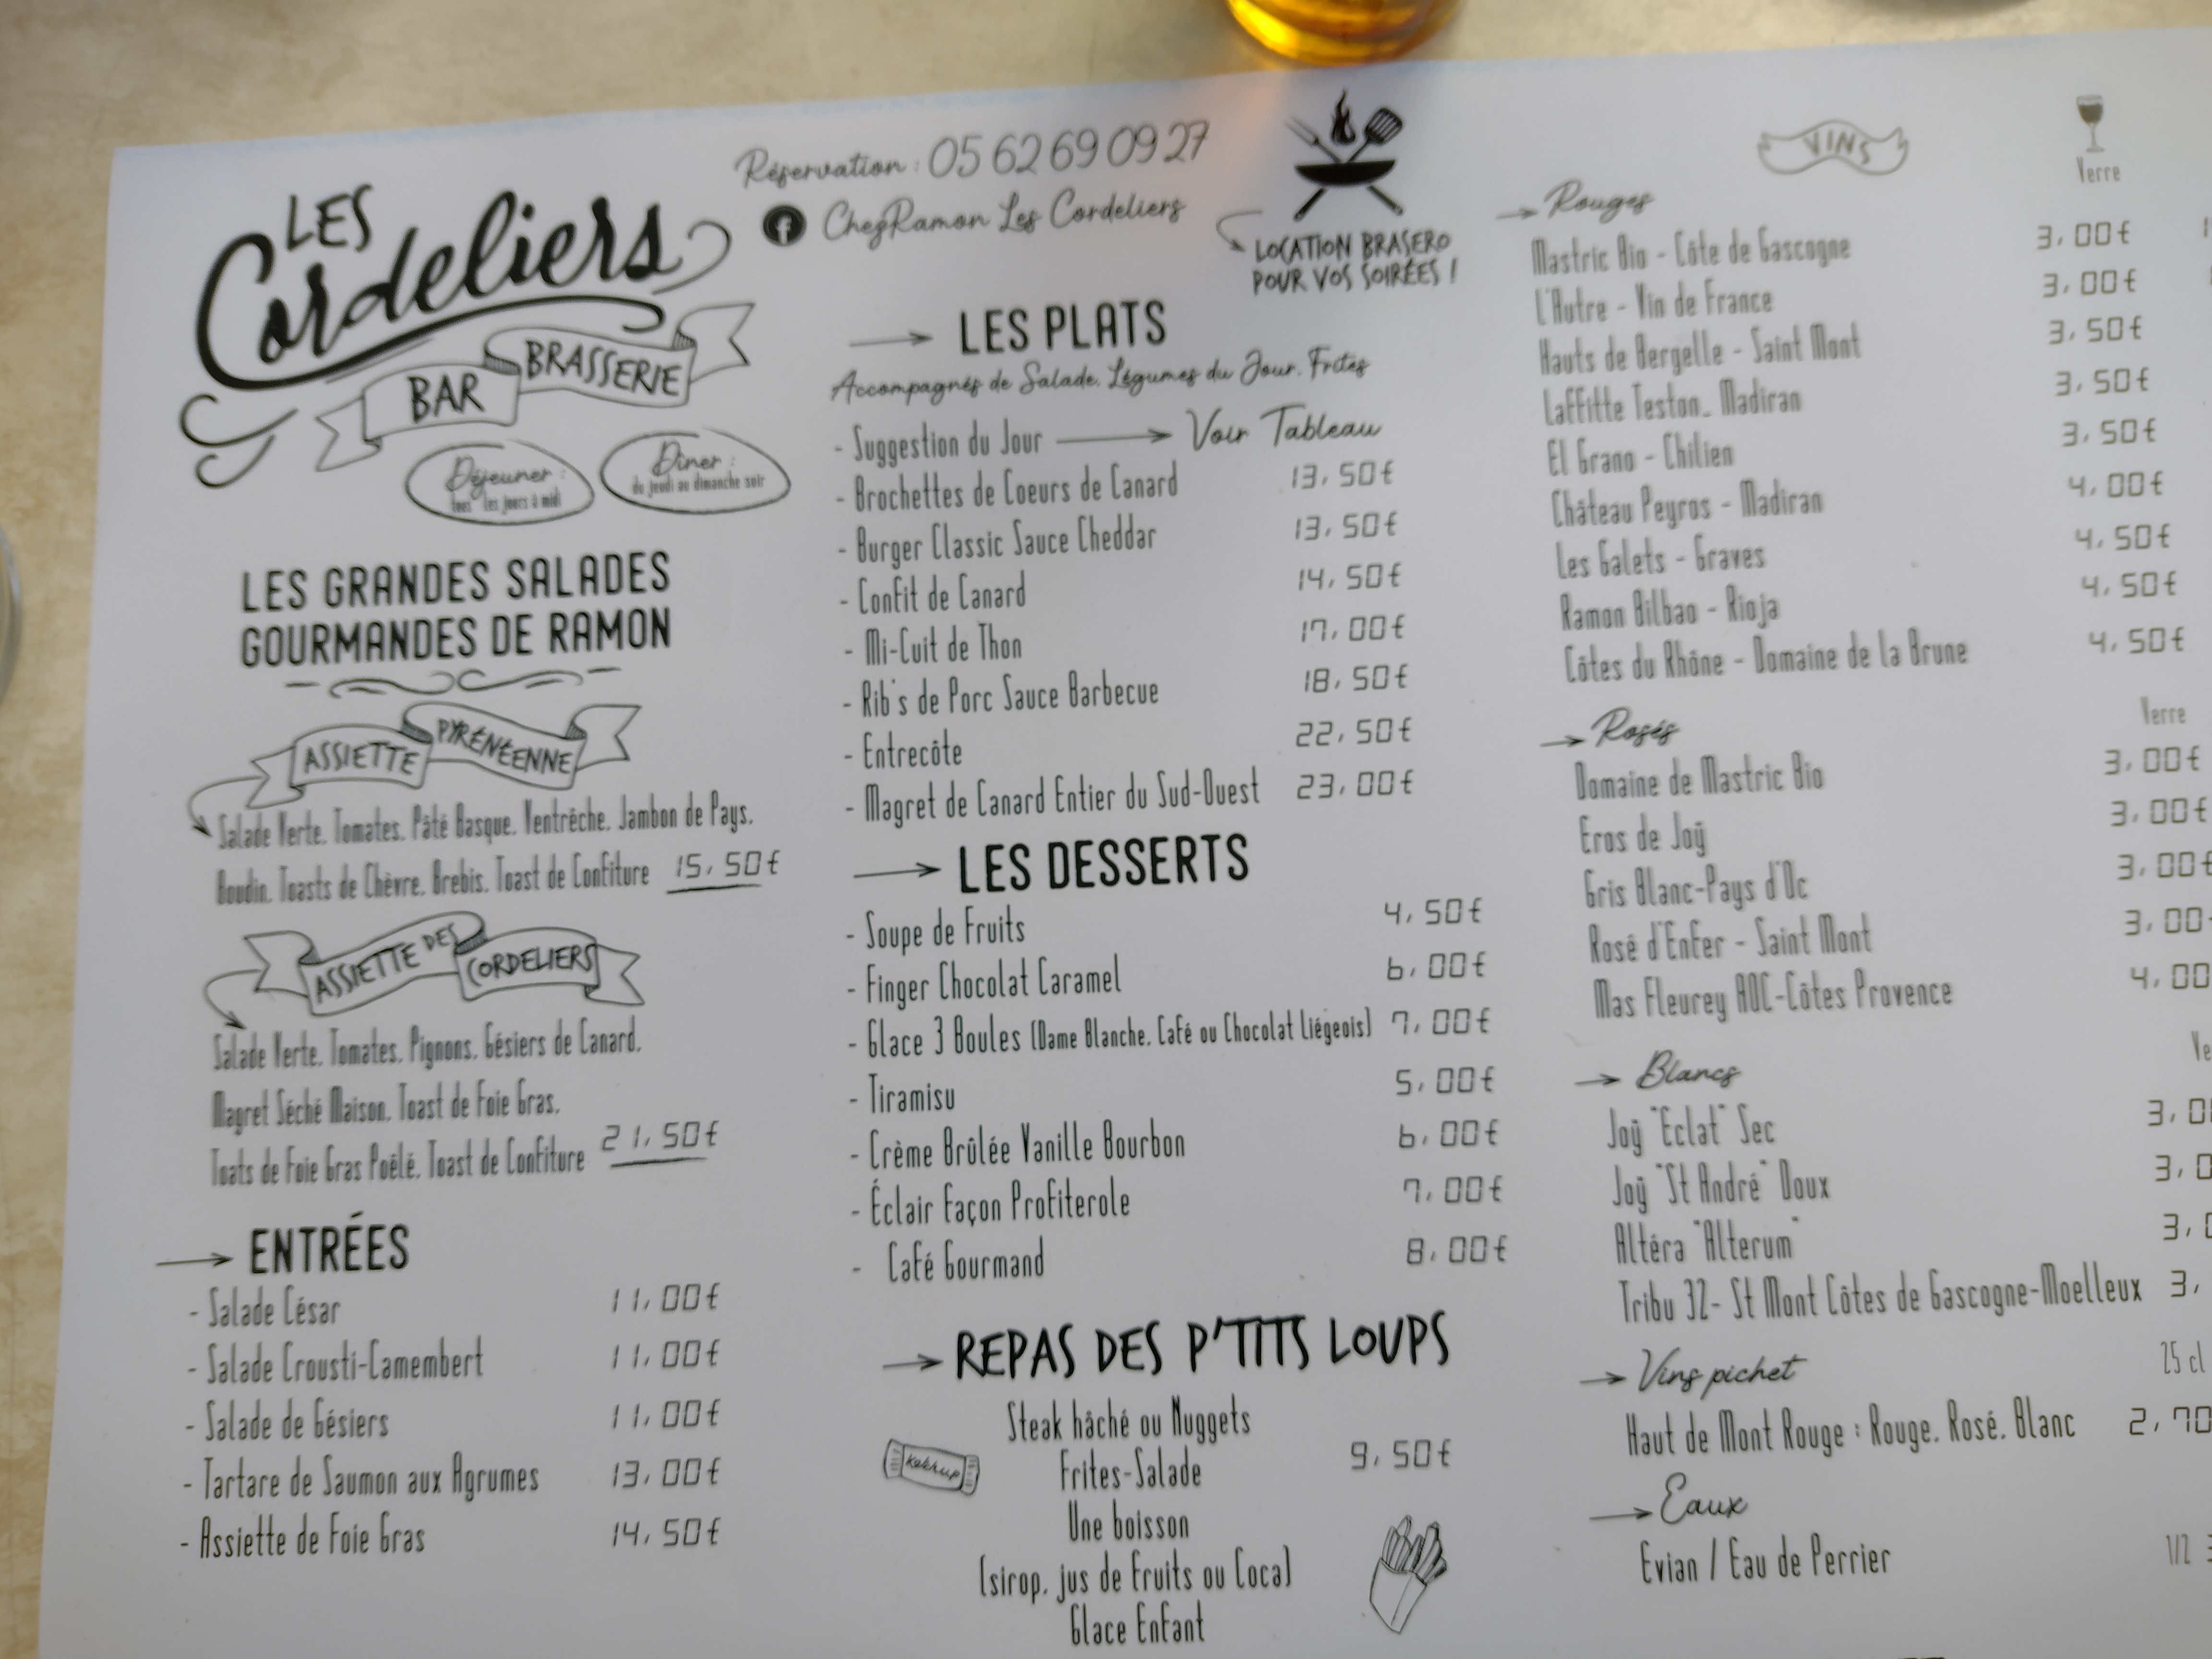 LES
Cordeliers
BAR BRASSERIE
Déjeuner :
tous les jours à midi
Dîner :
du jeudi au dimanche soir
Réservation : 05 62 69 09 27
ChezRamon Les Cordeliers
LOCATION BRASERO
POUR VOS SOIRÉES !
LES GRANDES SALADES
GOURMANDES DE RAMON
ASSIETTE PYRÉNÉENNE
Salade Verte, Tomates, Pâté Basque, Ventrêche, Jambon de Pays,
Boudin, Toasts de Chèvre, Brebis, Toast de Confiture 15,50€
ASSIETTE DES CORDELIERS
Salade Verte, Tomates, Pignons, Gésiers de Canard,
Magret Séché Maison, Toast de Foie Gras,
Toats de Foie Gras Poêlé, Toast de Confiture 21,50€
ENTRÉES
- Salade César 11,00€
- Salade Crousti-Camembert 11,00€
- Salade de Gésiers 11,00€
- Tartare de Saumon aux Agrumes 13,00€
- Assiette de Foie Gras 14,50€
LES PLATS
Accompagnés de Salade, Légumes du Jour, Frites
- Suggestion du Jour Voir Tableau
- Brochettes de Coeurs de Canard 13,50€
- Burger Classic Sauce Cheddar 13,50€
- Confit de Canard 14,50€
- Mi-Cuit de Thon 17,00€
- Rib's de Porc Sauce Barbecue 18,50€
- Entrecôte 22,50€
- Magret de Canard Entier du Sud-Ouest 23,00€
LES DESSERTS
- Soupe de Fruits 4,50€
- Finger Chocolat Caramel 6,00€
- Glace 3 Boules (Dame Blanche, Café ou Chocolat Liégeois) 7,00€
- Tiramisu 5,00€
- Crème Brûlée Vanille Bourbon 6,00€
- Éclair Façon Profiterole 7,00€
- Café Gourmand 8,00€
REPAS DES P'TITS LOUPS
Steak hâché ou Nuggets
Frites-Salade 9,50€
Ketchup
Une boisson
(sirop, jus de fruits ou Coca)
Glace Enfant
VINS
Verre
Rouges
Mastric Bio - Côte de Gascogne 3,00€
L'Autre - Vin de France 3,00€
Hauts de Bergelle - Saint Mont 3,50€
Laffitte Teston_ Madiran 3,50€
El Grano - Chilien 3,50€
Château Peyros - Madiran 4,00€
Les Galets - Graves 4,50€
Ramon Bilbao - Rioja 4,50€
Côtes du Rhône - Domaine de la Brune 4,50€
Rosés Verre
Domaine de Mastric Bio 3,00€
Eros de Joÿ 3,00€
Gris Blanc-Pays d'Oc 3,00€
Rosé d'Enfer - Saint Mont 3,00
Mas Fleurey AOC-Côtes Provence 4,00
Blancs Ve
Joÿ "Eclat" Sec 3,0
Joÿ "St André" Doux 3,0
Altéra "Alterum" 3,
Tribu 32- St Mont Côtes de Gascogne-Moelleux 3,
Vins pichet 25 cl
Haut de Mont Rouge : Rouge, Rosé, Blanc 2,70
Eaux
Evian / Eau de Perrier 1/2